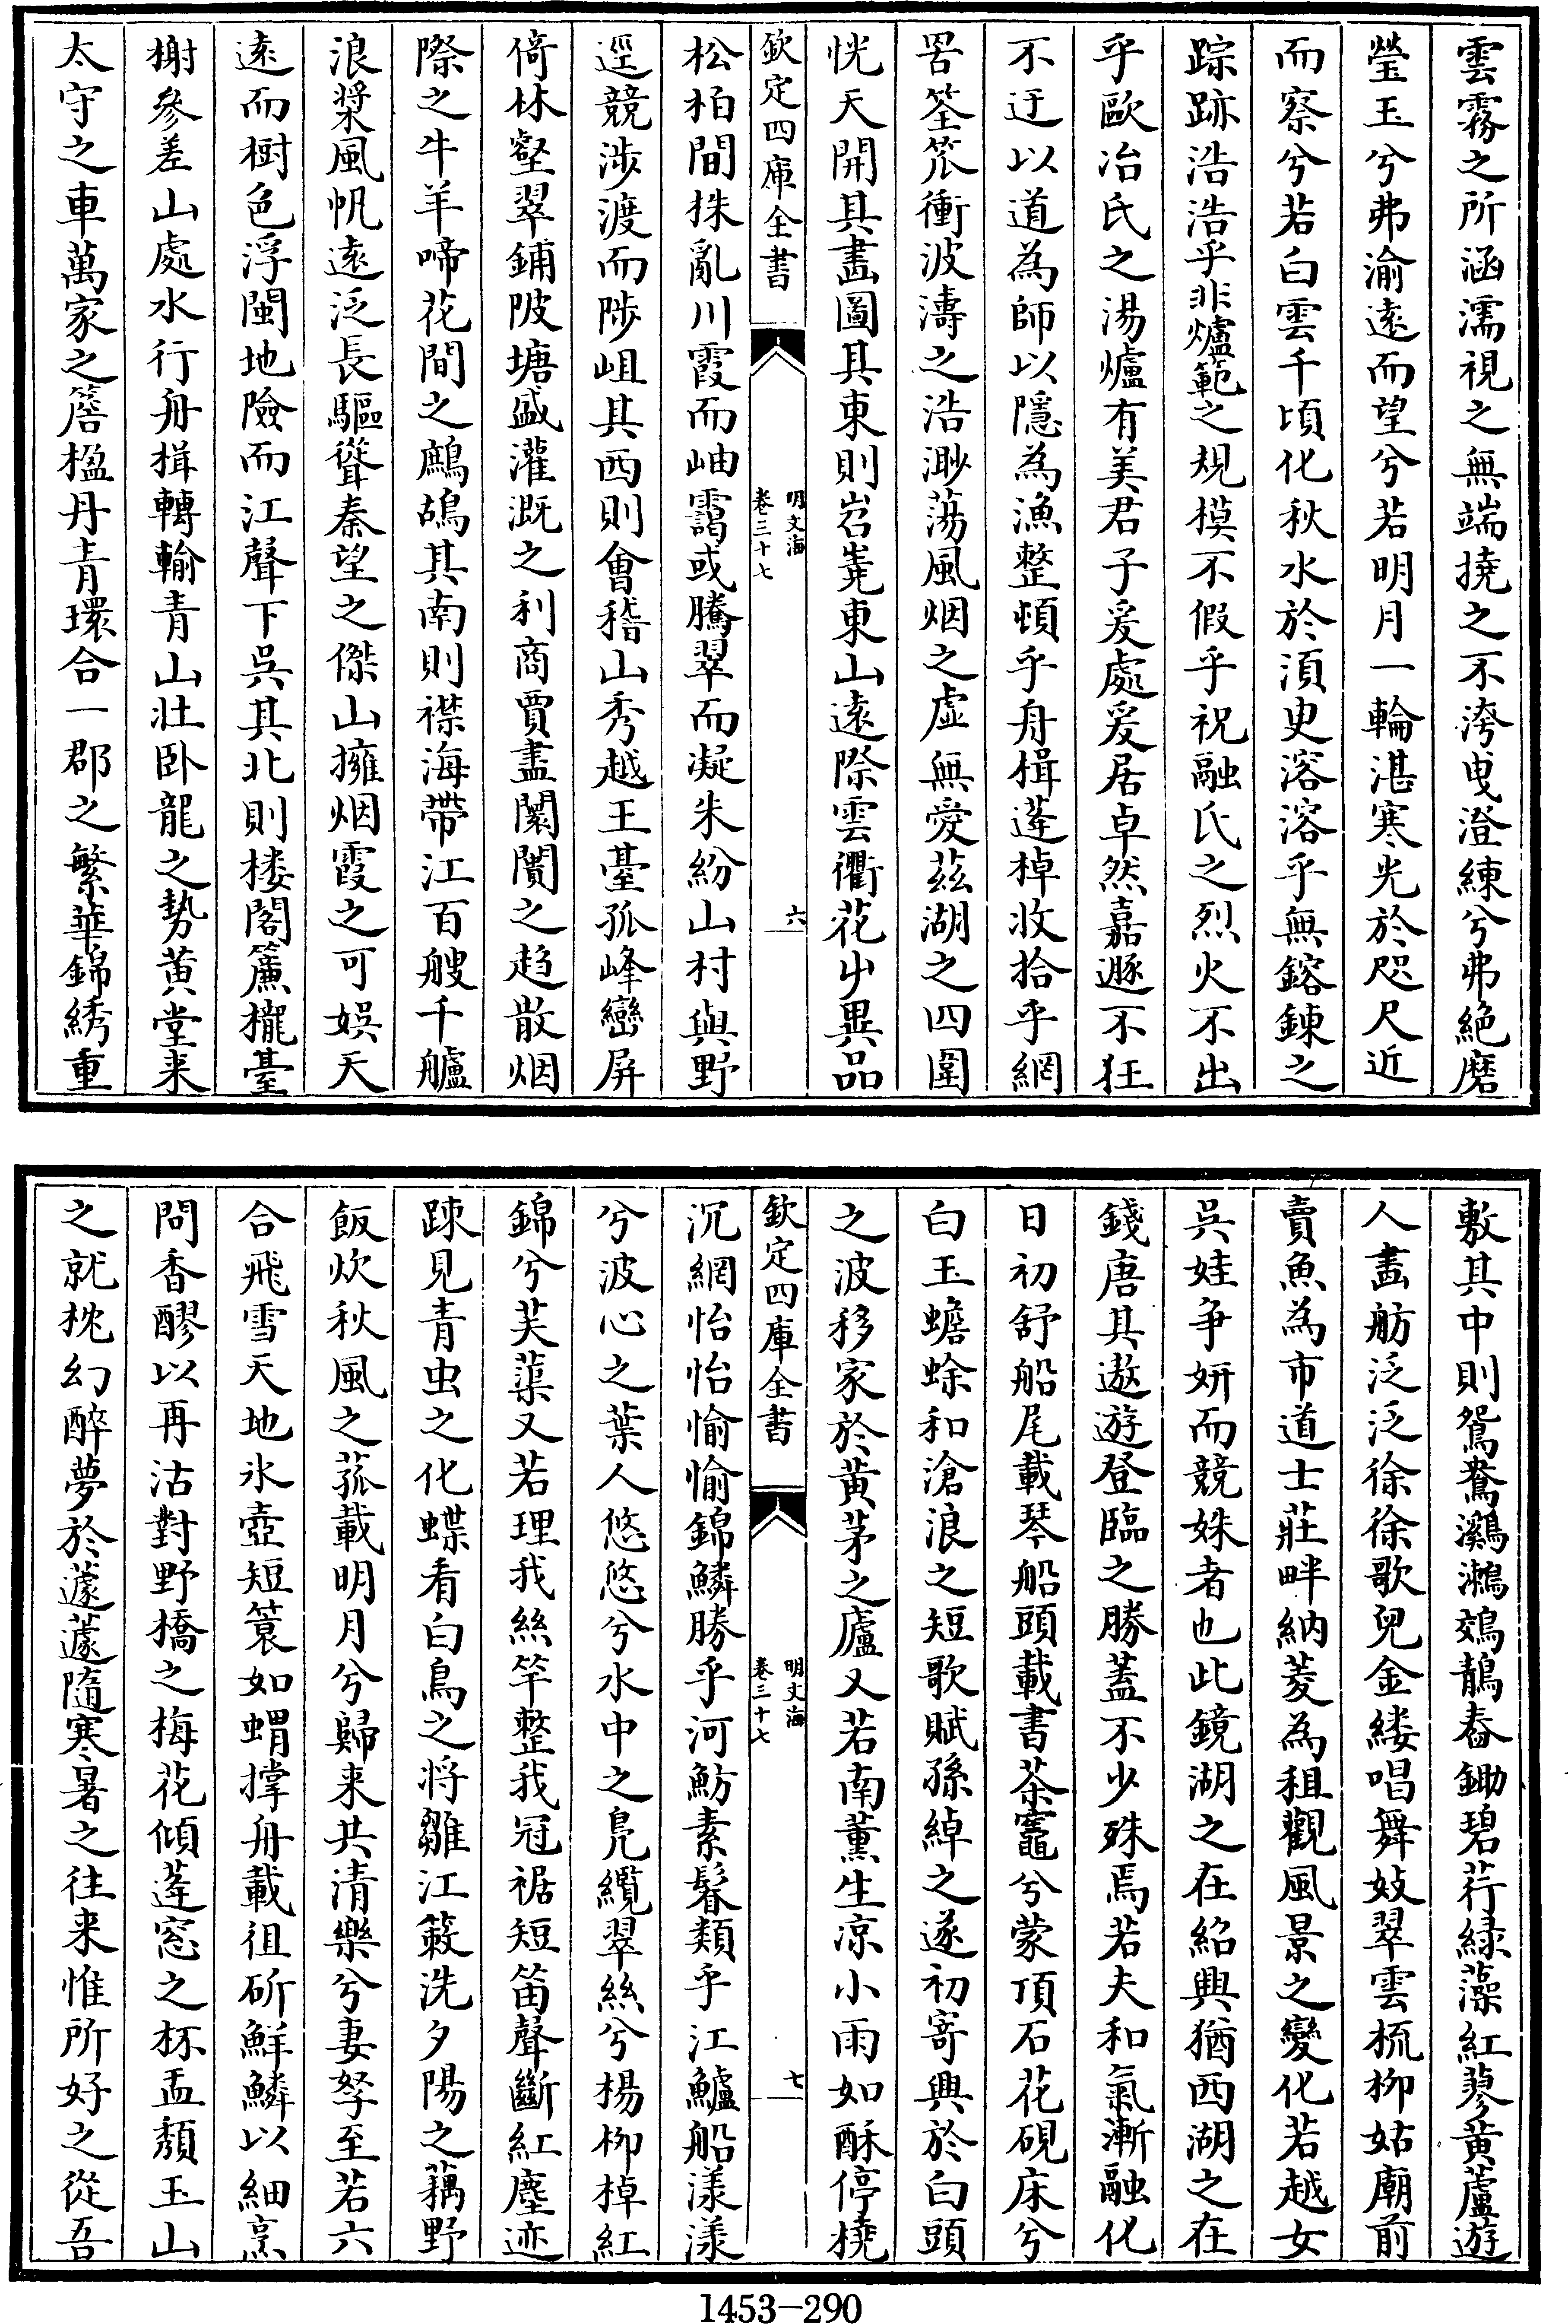 雲霧之所涵濡視之無端撓之不洿曳澄練兮弗絕磨
瑩玉兮弗渝遠而望兮若明月一輪湛寒光於咫尺近
而察兮若白雲千頃化秋水於湏史溶溶乎無鎔鍊之
踪跡浩浩乎非爐範之規模不假乎祝融氏之烈火不出
乎歐冶氏之湯爐有美君子爰處爰居卓然嘉遯不狂
不迂以道為師以隱為漁整頓乎舟楫蓬棹收拾乎網
罟筌笊衝波濤之浩渺蕩風烟之虛無愛茲湖之四圍
恍天開其畫圖其東則岩嶤東山遠際雲衢花屮異品
欽定四庫全書
明文海
卷三十七
六
松柏間株亂川霞而岫靄或騰翠而凝朱紛山村與野
逕競涉渡而陟岨其西則會稽山秀越王臺孤峰巒屏
倚林壑翠鋪陂塘盛灌溉之利商賈盡闤闠之趋散烟
際之牛羊啼花間之鷓鴣其南則襟海帶江百艘千艫
浪槳風帆遠泛長驅聳秦望之傑山擁烟霞之可娛天
遠而樹色浮閩地險而江聲下吳其北則楼閣簾櫳臺
榭參差山處水行舟楫轉輸青山壯卧龍之勢黃堂来
太守之車萬家之簷楹丹青環合一郡之繁華錦綉重
敷其中則鴛鴦鸂鶒鵁鶄舂鋤碧荇緑藻紅蓼黄蘆遊
人畫舫泛泛徐徐歌兒金縷唱舞妓翠雲梳柳姑廟前
賣魚為市道士莊畔納菱為租觀風景之變化若越女
吳娃争妍而競姝者也此鏡湖之在紹興猶西湖之在
錢唐其遨遊登臨之勝蓋不少殊焉若夫和氣漸融化
日初舒船尾載琴船頭載書茶竈兮蒙頂石花硯床兮
白玉蟾蜍和滄浪之短歌賦孫綽之遂初寄興於白頭
之波移家於黃茅之廬又若南薰生凉小雨如酥停橈
欽定四庫全書
明文海
卷三十七
七
沉網怡怡愉愉錦鱗勝乎河魴素髾類乎江鱸船漾漾
兮波心之葉人悠悠兮水中之鳧纜翠絲兮楊柳棹紅
錦兮芙蕖又若理我絲竿整我冠裾短笛聲斷紅塵迹
踈見青虫之化蝶看白鳥之将雛江簌洗夕陽之藕野
飯炊秋風之菰載明月兮歸来共清樂兮妻孥至若六
合飛雪天地氷壺短簑如蝟撑舟載徂斫鮮鱗以細烹
問香醪以再沽對野橋之梅花傾蓬窓之杯盂頹玉山
之就枕幻醉夢於蘧蘧隨寒暑之往来惟所好之從吾
1453-290